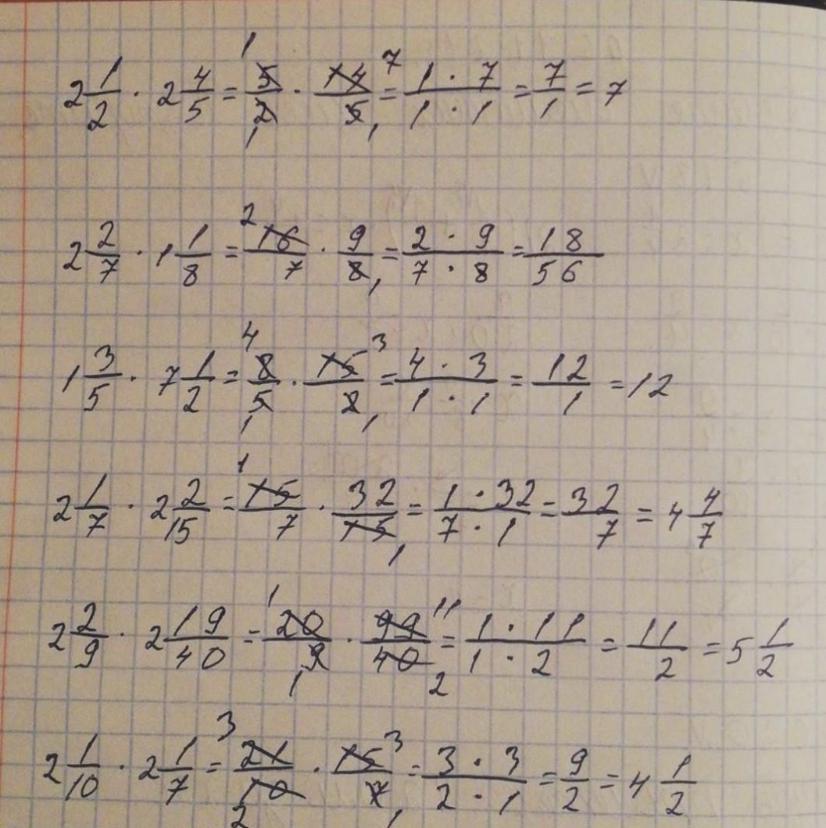 2 1/2 · 2 4/5 = 5/2 · 14/5 = 1 · 7/1 · 1 = 7/1 = 7
2 2/7 · 1 1/8 = 16/7 · 9/8 = 2 · 9/7 · 8 = 18/56
1 3/5 · 7 1/2 = 8/5 · 15/2 = 4 · 3/1 · 1 = 12/1 = 12
2 1/7 · 2 2/15 = 15/7 · 32/15 = 1 · 32/7 · 1 = 32/7 = 4 4/7
2 2/9 · 2 19/40 = 20/9 · 99/40 = 1 · 11/1 · 2 = 11/2 = 5 1/2
2 1/10 · 2 1/7 = 21/10 · 15/7 = 3 · 3/2 · 1 = 9/2 = 4 1/2